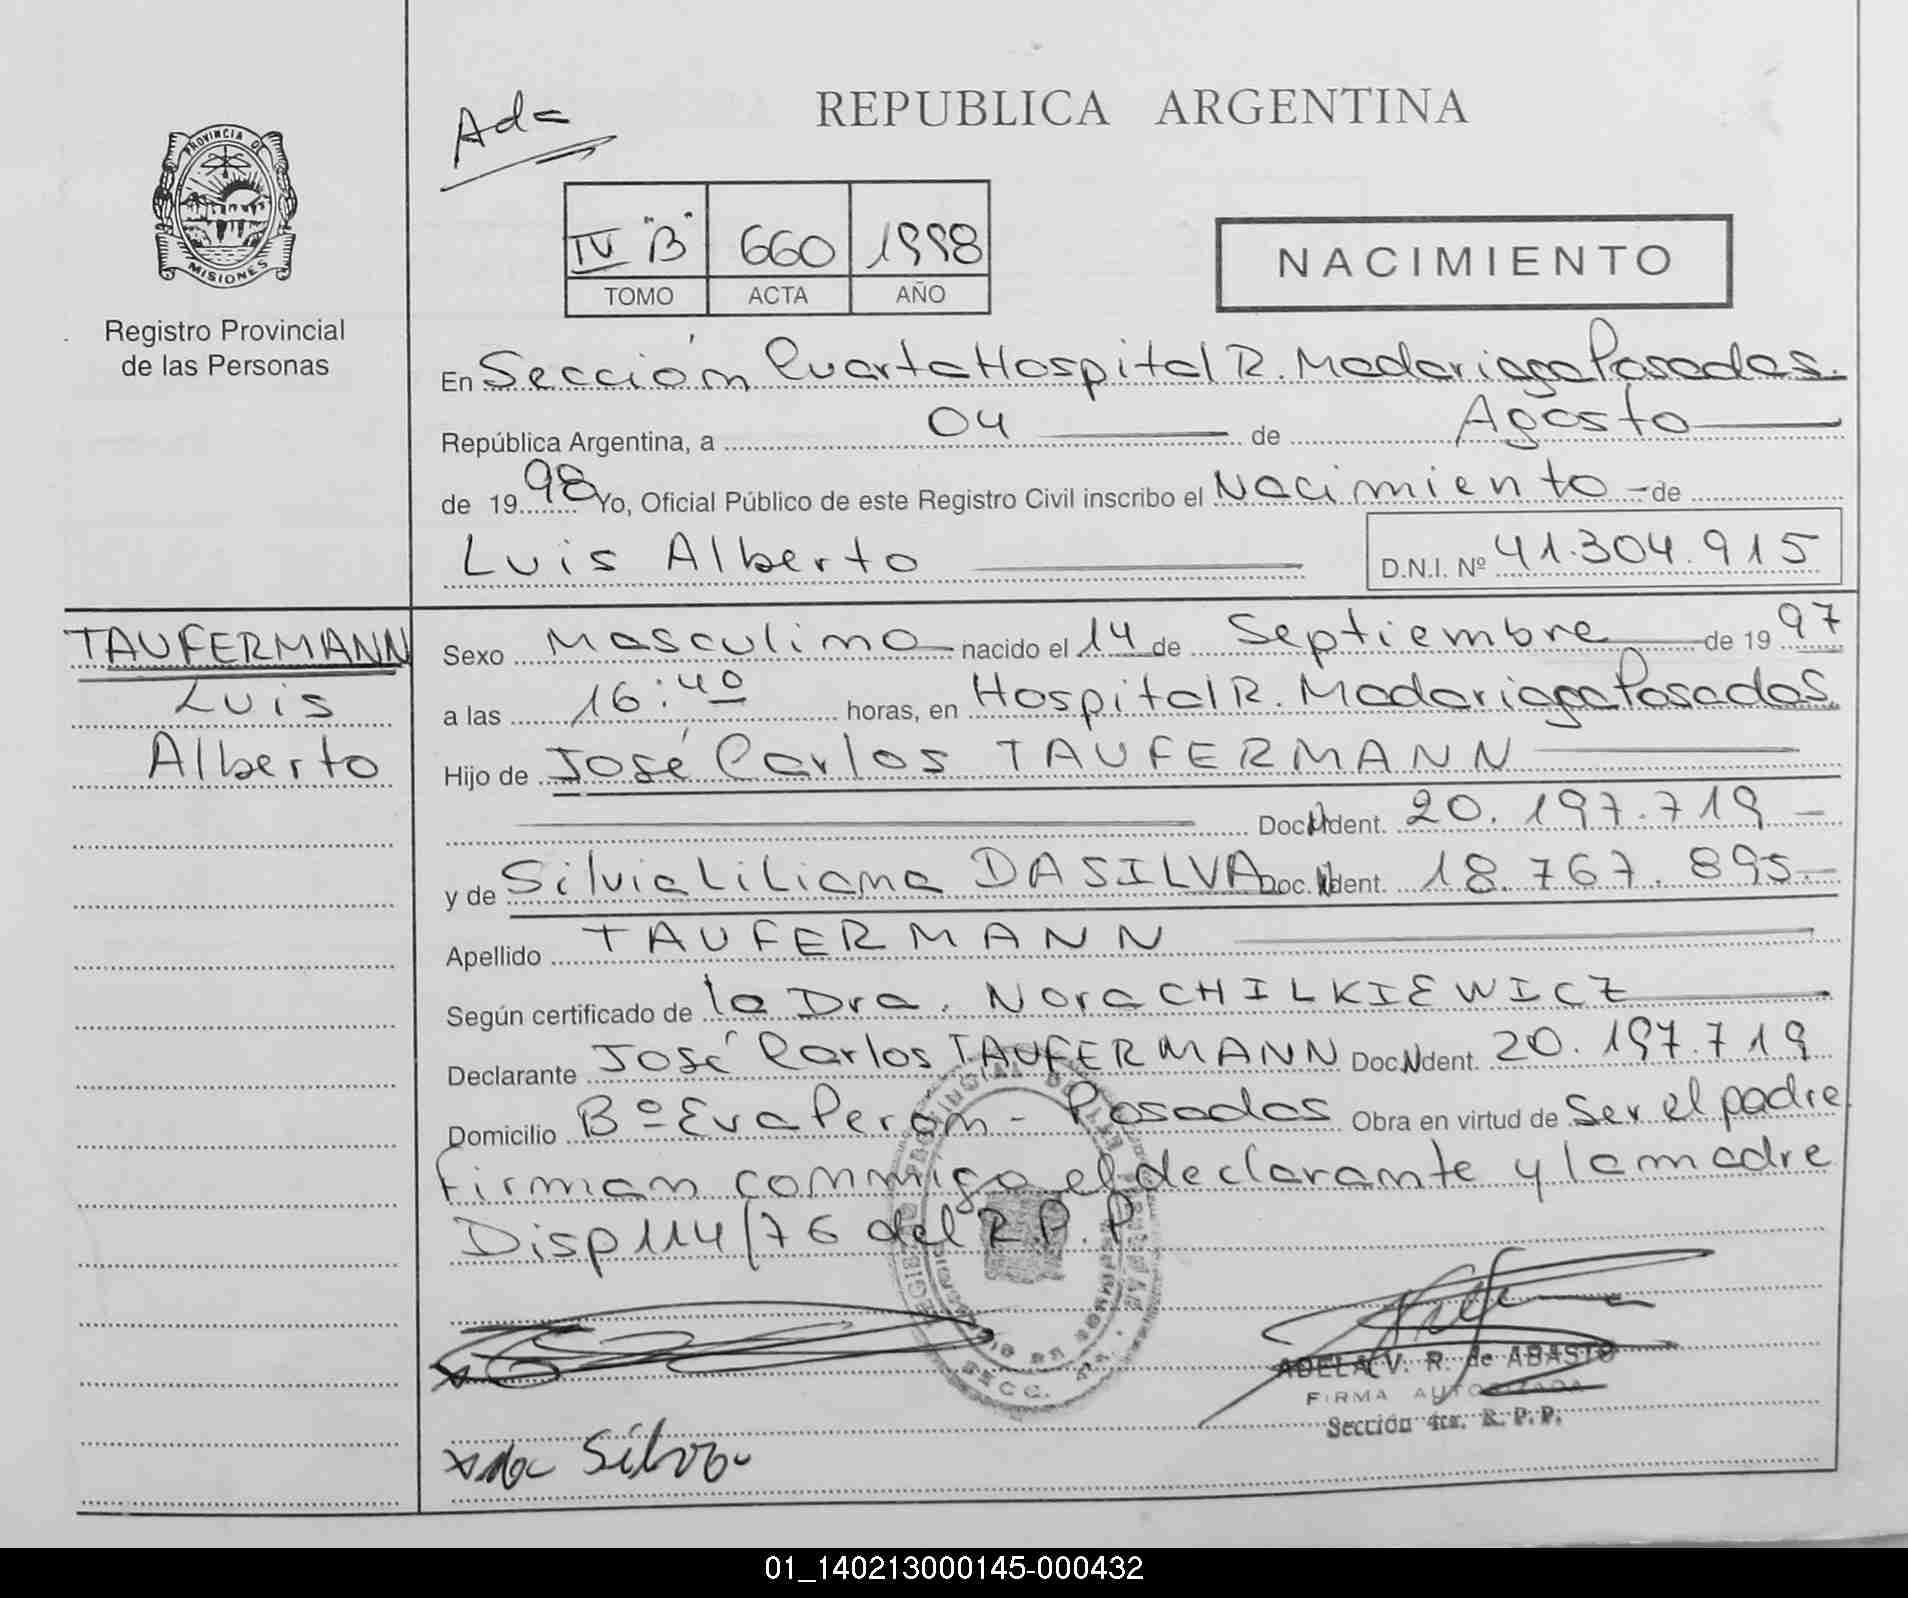 Ada
REPUBLICA ARGENTINA
PROVINCIA DE
MISIONES
Registro Provincial
de las Personas
IV "B" 660 1998
TOMO ACTA AÑO
NACIMIENTO
En Sección Cuarta Hospital R. Madariaga Posadas.
República Argentina, a 04 de Agosto
de 1998 Yo, Oficial Público de este Registro Civil inscribo el Nacimiento - de
Luis Alberto
D.N.I. Nº 41.304.915
TAUFERMANN
Luis
Alberto
Sexo Masculino nacido el 14 de Septiembre de 1997
a las 16:40 horas, en Hospital R. Madariaga Posadas
Hijo de José Carlos TAUFERMANN
Doc. N dent. 20.197.719 -
y de Silvia Liliana DASILVA Doc. N dent. 18.767.895.-
Apellido TAUFERMANN
Según certificado de la Dra. Nora CHILKIEWICZ
Declarante José Carlos TAUFERMANN Doc. N dent. 20.197.719
Domicilio Bº Eva Peron - Posadas Obra en virtud de Ser el padre
firman conmigo el declarante y la madre
Disp 114/76 del R.P.P
ADELA V. R. de ABASTO
FIRMA AUTORIZADA
Sección 4ta. R. P. P.
da Silva
01_140213000145-000432